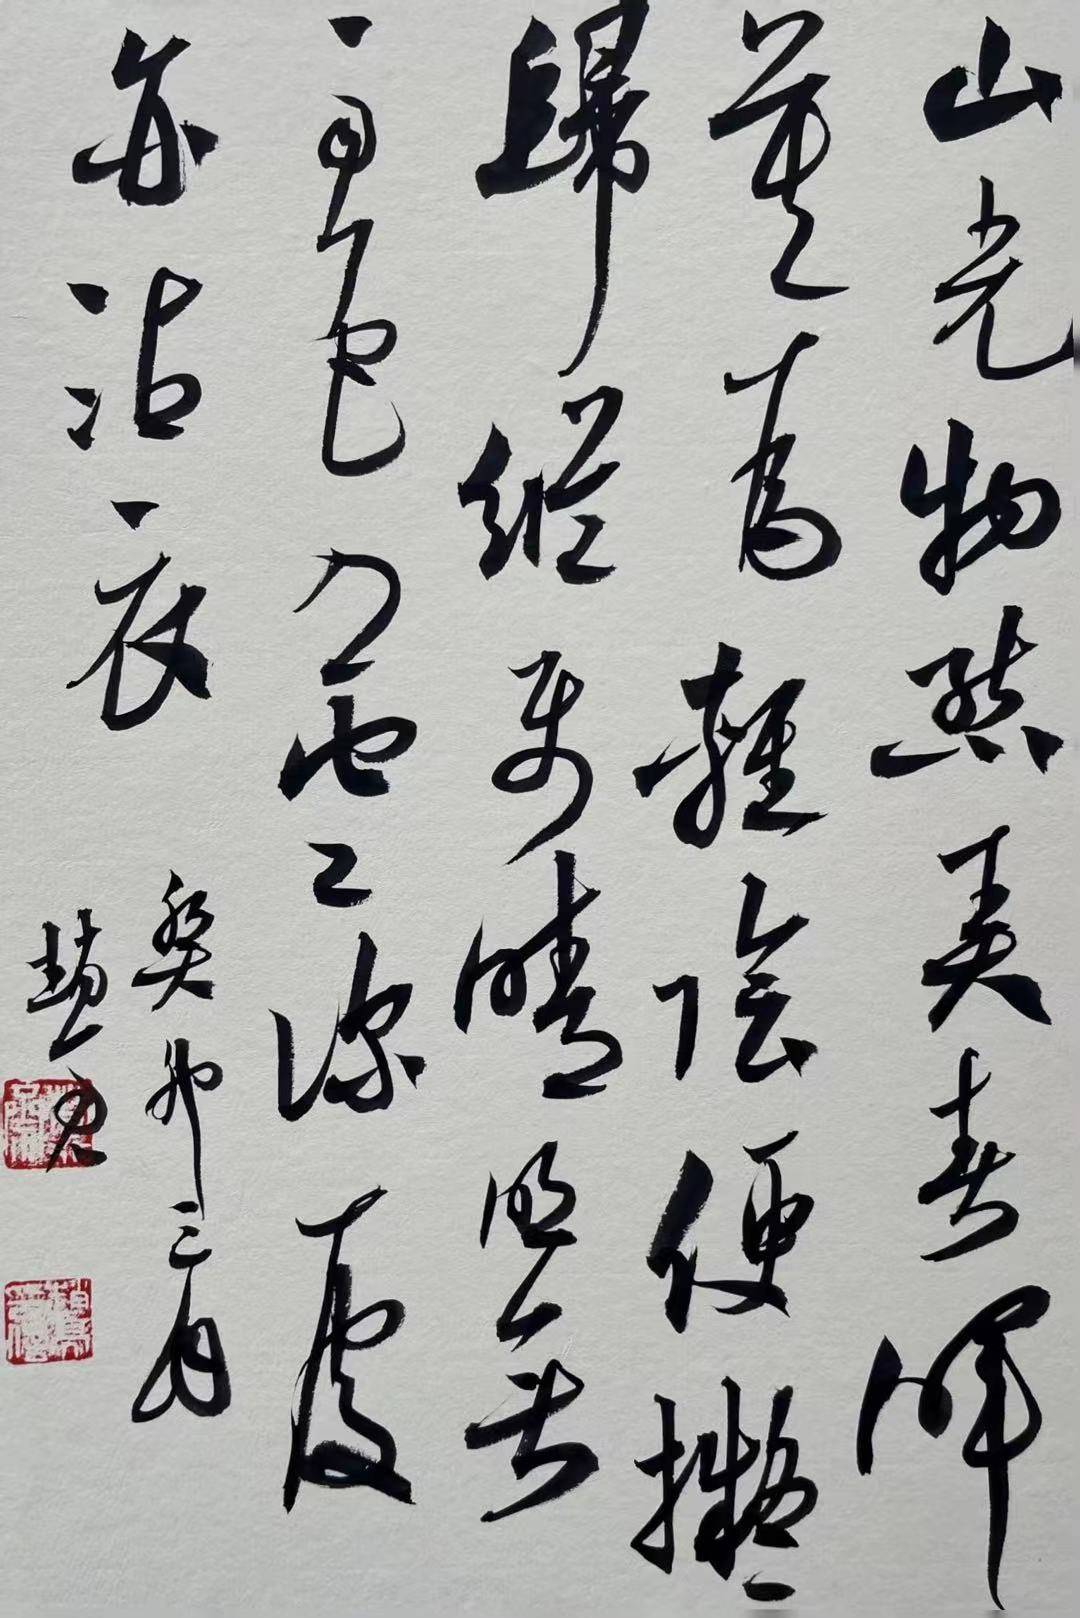 山光物態弄春暉
莫為輕陰便擬
歸縱使晴明無
雨色入雲深處
亦沾衣
癸卯三月
趙